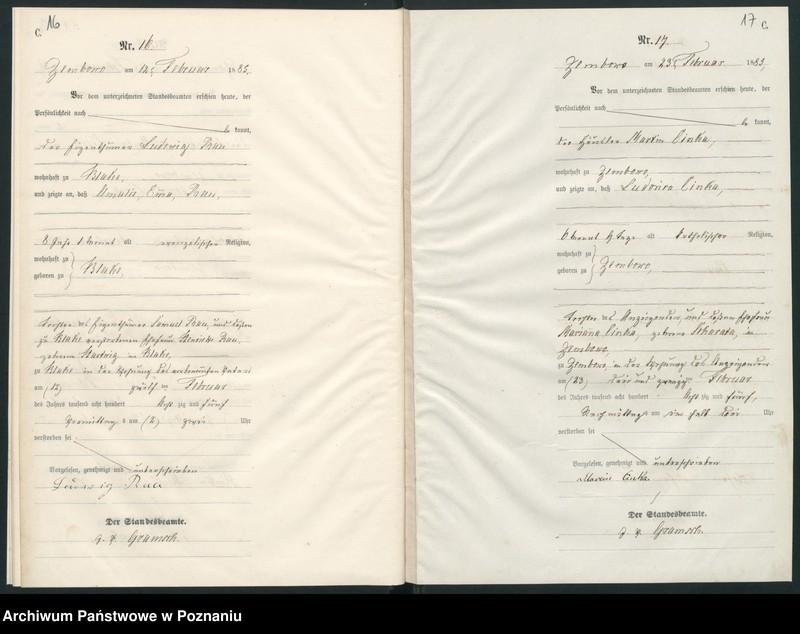 C. 16
Nr. 16
Zembowo am 12. Februar 1885,
Vor dem unterzeichneten Standesbeamten erschien heute, der
Persönlichkeit nach
be kannt,
der Eigenthümer Ludwig Rau
wohnhaft zu Blake,
und zeigte an, daß Amalie, Ema, Rau,
8 Jahr 1 Monat alt evangelischer Religion,
wohnhaft zu
geboren zu Blake,
Tochter des Eigenthümer Samuel Rau, und dessen
zu Blake verstorbenen Ehefrau Rau,
geborene Hartwig in Blake,
zu Blake in der Wohnung des
am (12) zwölf ten Februar
des Jahres tausend acht hundert Acht zig und fünf
Vormittags um (2) zwei Uhr
verstorben sei
Vorgelesen, genehmigt und unterschrieben
Ludwig Rau
Der Standesbeamte.
17 C.
Nr. 17.
Zembowo am 23. Februar 1885,
Vor dem unterzeichneten Standesbeamten erschien heute, der
Persönlichkeit nach
be kannt,
der Häusler Martin Cinka,
wohnhaft zu Zembowo,
und zeigte an, daß Ludovica Cinka,
6 Monat Tage alt katholischer Religion,
wohnhaft zu
geboren zu Zembowo,
Tochter des Anzeigenden, und dessen Ehefrau
Marianna Cinka, geborene in
Zembowo,
zu Zembowo, in der Wohnung des Anzeigenden
am (23) drei und zwanzig Februar
des Jahres tausend acht hundert Acht zig und fünf,
Nachmittags um ein halb drei Uhr
verstorben sei
Vorgelesen, genehmigt und unterschrieben
Marcin Cinka
Der Standesbeamte.
Archiwum Państwowe w Poznaniu